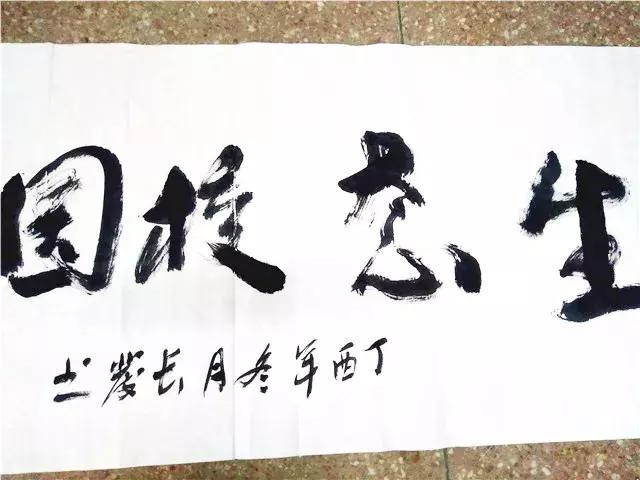 生态校园
丁酉年冬月长發书